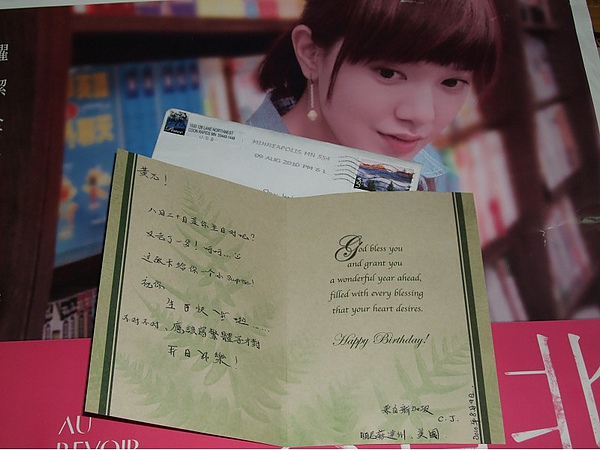 MINNEAPOLIS MN 554
09 AUG 2010 PM 6 1
八月二十日是你生日對吧?
又老了一岁!呵呵…
這張卡給你一个小surprise!
祝你
生日快乐啦……
不对不对,應該寫繁體字才對
生日快樂!
God bless you
and grant you
a wonderful year ahead,
filled with every blessing
that your heart desires.
Happy Birthday!
來自新加坡
C.J.
明尼蘇達州,美國
2010年8月9日
AU
REVOIR
北